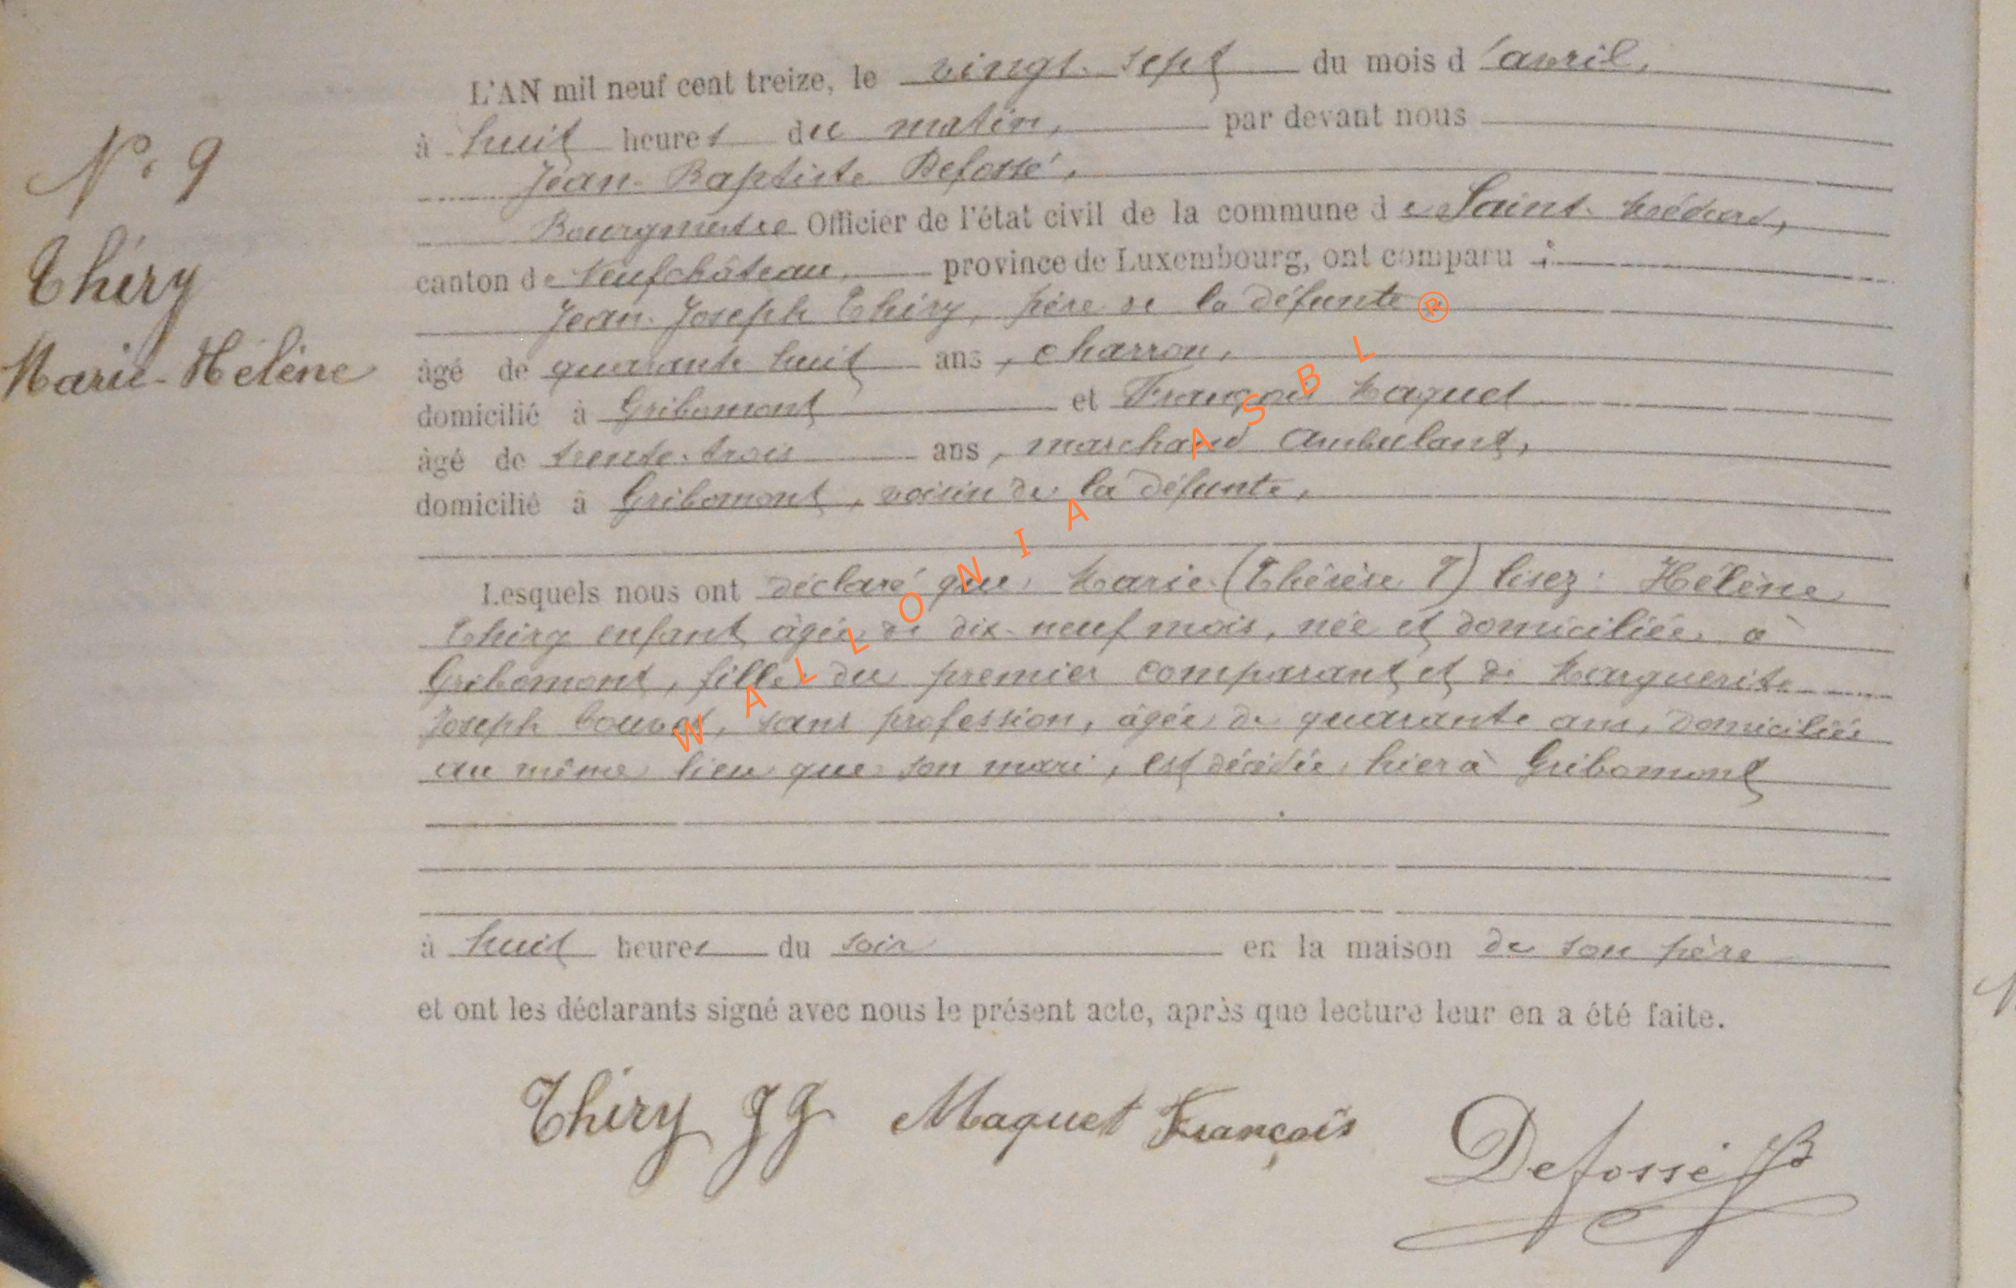 N° 9
Thiry
Marie-Hélène
L'AN mil neuf cent treize, le vingt-sept du mois d'avril,
à huit heures du matin, par devant nous
Jean-Baptiste Defossé,
Bourgmestre Officier de l'état civil de la commune de Saint-Médard,
canton de Neufchâteau, province de Luxembourg, ont comparu :
Jean-Joseph Thiry, père de la défunte
âgé de quarante huit ans, charron,
domicilié à Gribomont et François Maquet
âgé de trente-trois ans, marchand ambulant,
domicilié à Gribomont, voisin de la défunte,
Lesquels nous ont déclaré que Marie (Thérèse T) lisez : Hélène
Thiry enfant âgée de dix-neuf mois, née et domiciliée à
Gribomont, fille du premier comparant et de Marguerite
Joseph, sans profession, âgée de quarante ans, domiciliée
au même lieu que son mari, est décédée hier à Gribomont
à huit heures du soir en la maison de son père
et ont les déclarants signé avec nous le présent acte, après que lecture leur en a été faite.
Thiry JJ Maquet François
Defossé JB
WALLONIA ASBL ®